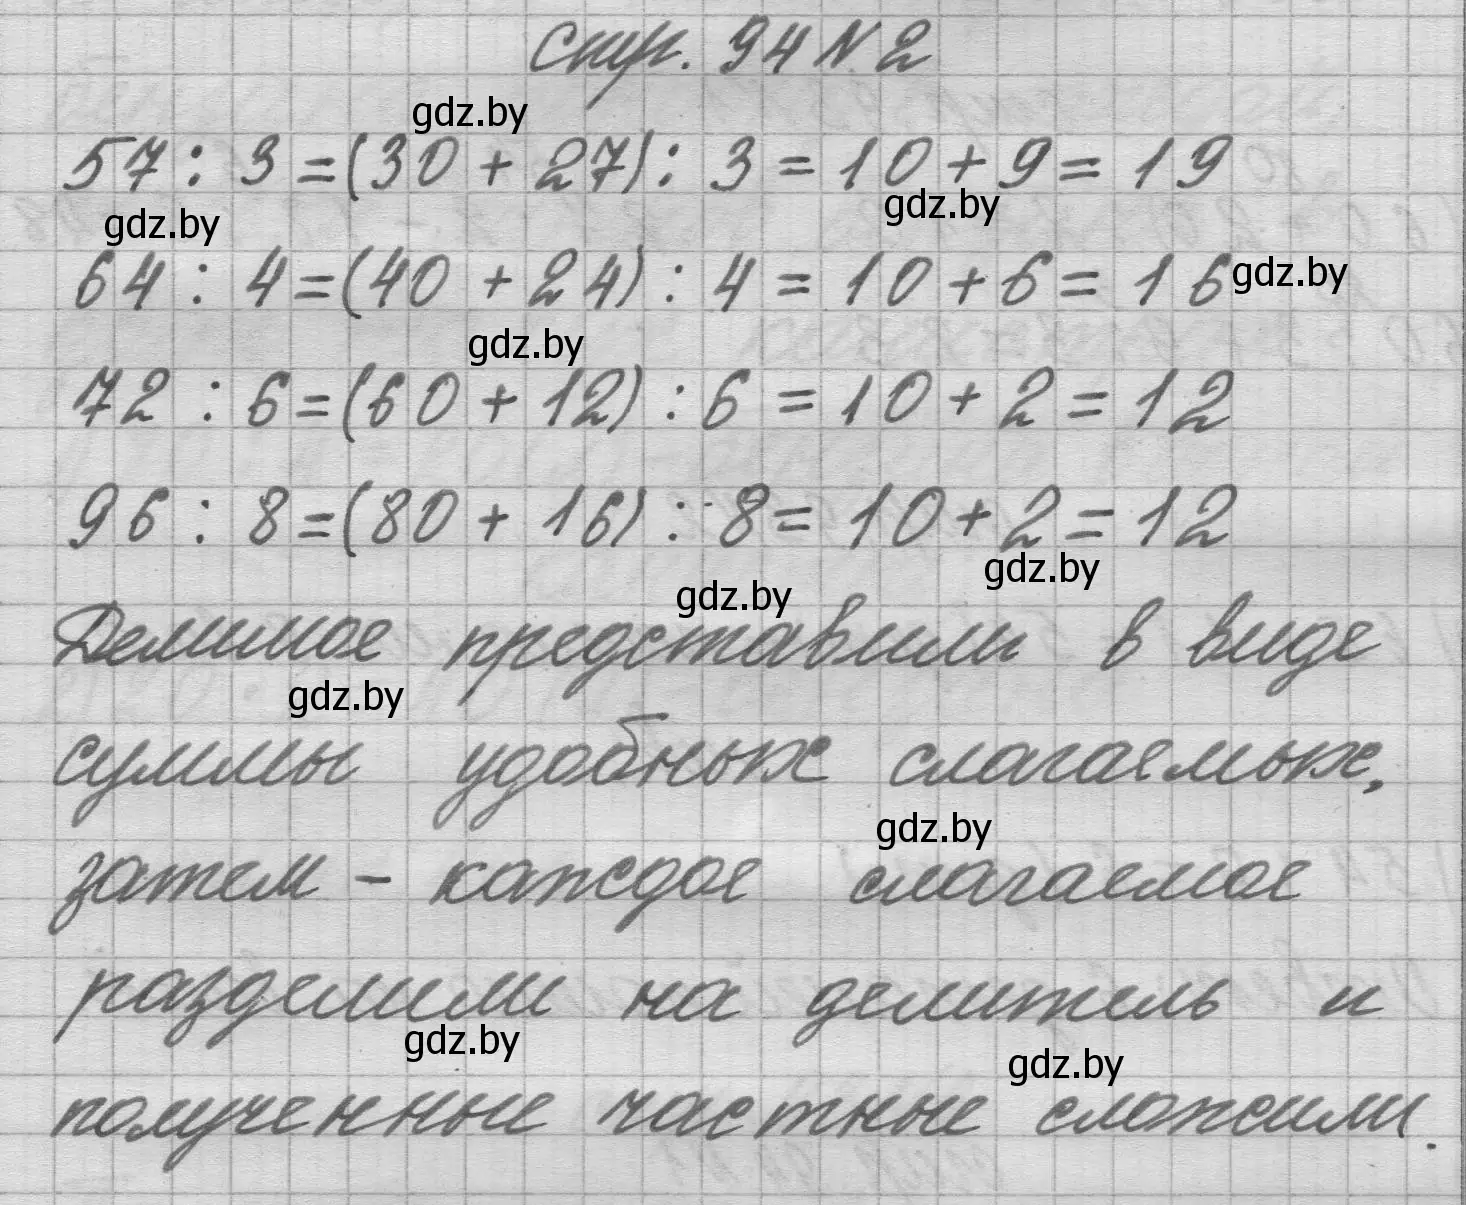 Стр. 94 № 2
gdz.by
57 : 3 = (30 + 27) : 3 = 10 + 9 = 19
gdz.by gdz.by
64 : 4 = (40 + 24) : 4 = 10 + 6 = 16 gdz.by
gdz.by
72 : 6 = (60 + 12) : 6 = 10 + 2 = 12
96 : 8 = (80 + 16) : 8 = 10 + 2 = 12
gdz.by
gdz.by
Делимое представили в виде
gdz.by
суммы удобных слагаемых,
gdz.by
затем - каждое слагаемое
разделили на делитель и
gdz.by
gdz.by
полученные частные сложили.